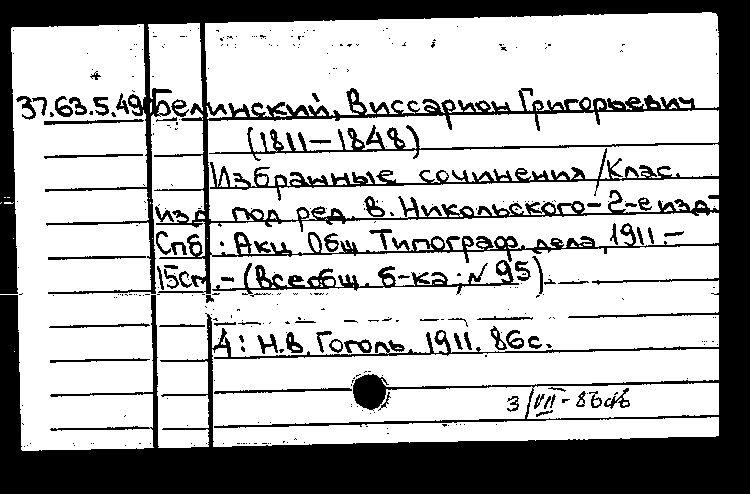 37.63.5.490 Белинский, Виссарион Григорьевич
(1811–1848)
Избранные сочинения / Клас.
изд. под ред. В. Никольского – 2-е изд. –
Спб. : Акц. Общ. Типограф. дела, 1911. –
15см. – (Всеобщ. б-ка; № 95).
4: Н.В. Гоголь. 1911. 86с.
3/VII - 86